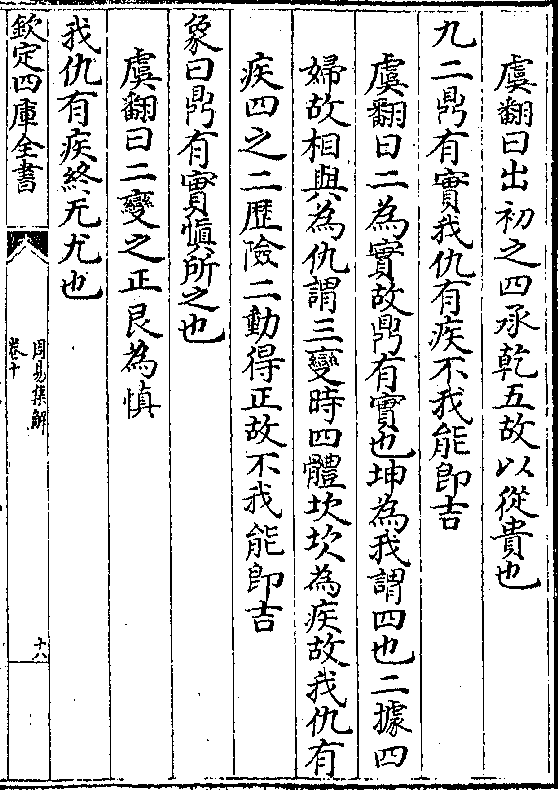 虞翻曰出初之四承乾五故以從貴也
九二鼎有實我仇有疾不我能即吉
虞翻曰二為實故鼎有實也坤為我謂四也二據四
婦故相與為仇謂三變時四體坎坎為疾故我仇有
疾四之二歷險二動得正故不我能即吉
象曰鼎有實愼所之也
虞翻曰二變之正艮為慎
我仇有疾終无尤也
欽定四庫全書
周易集解
卷十
十八